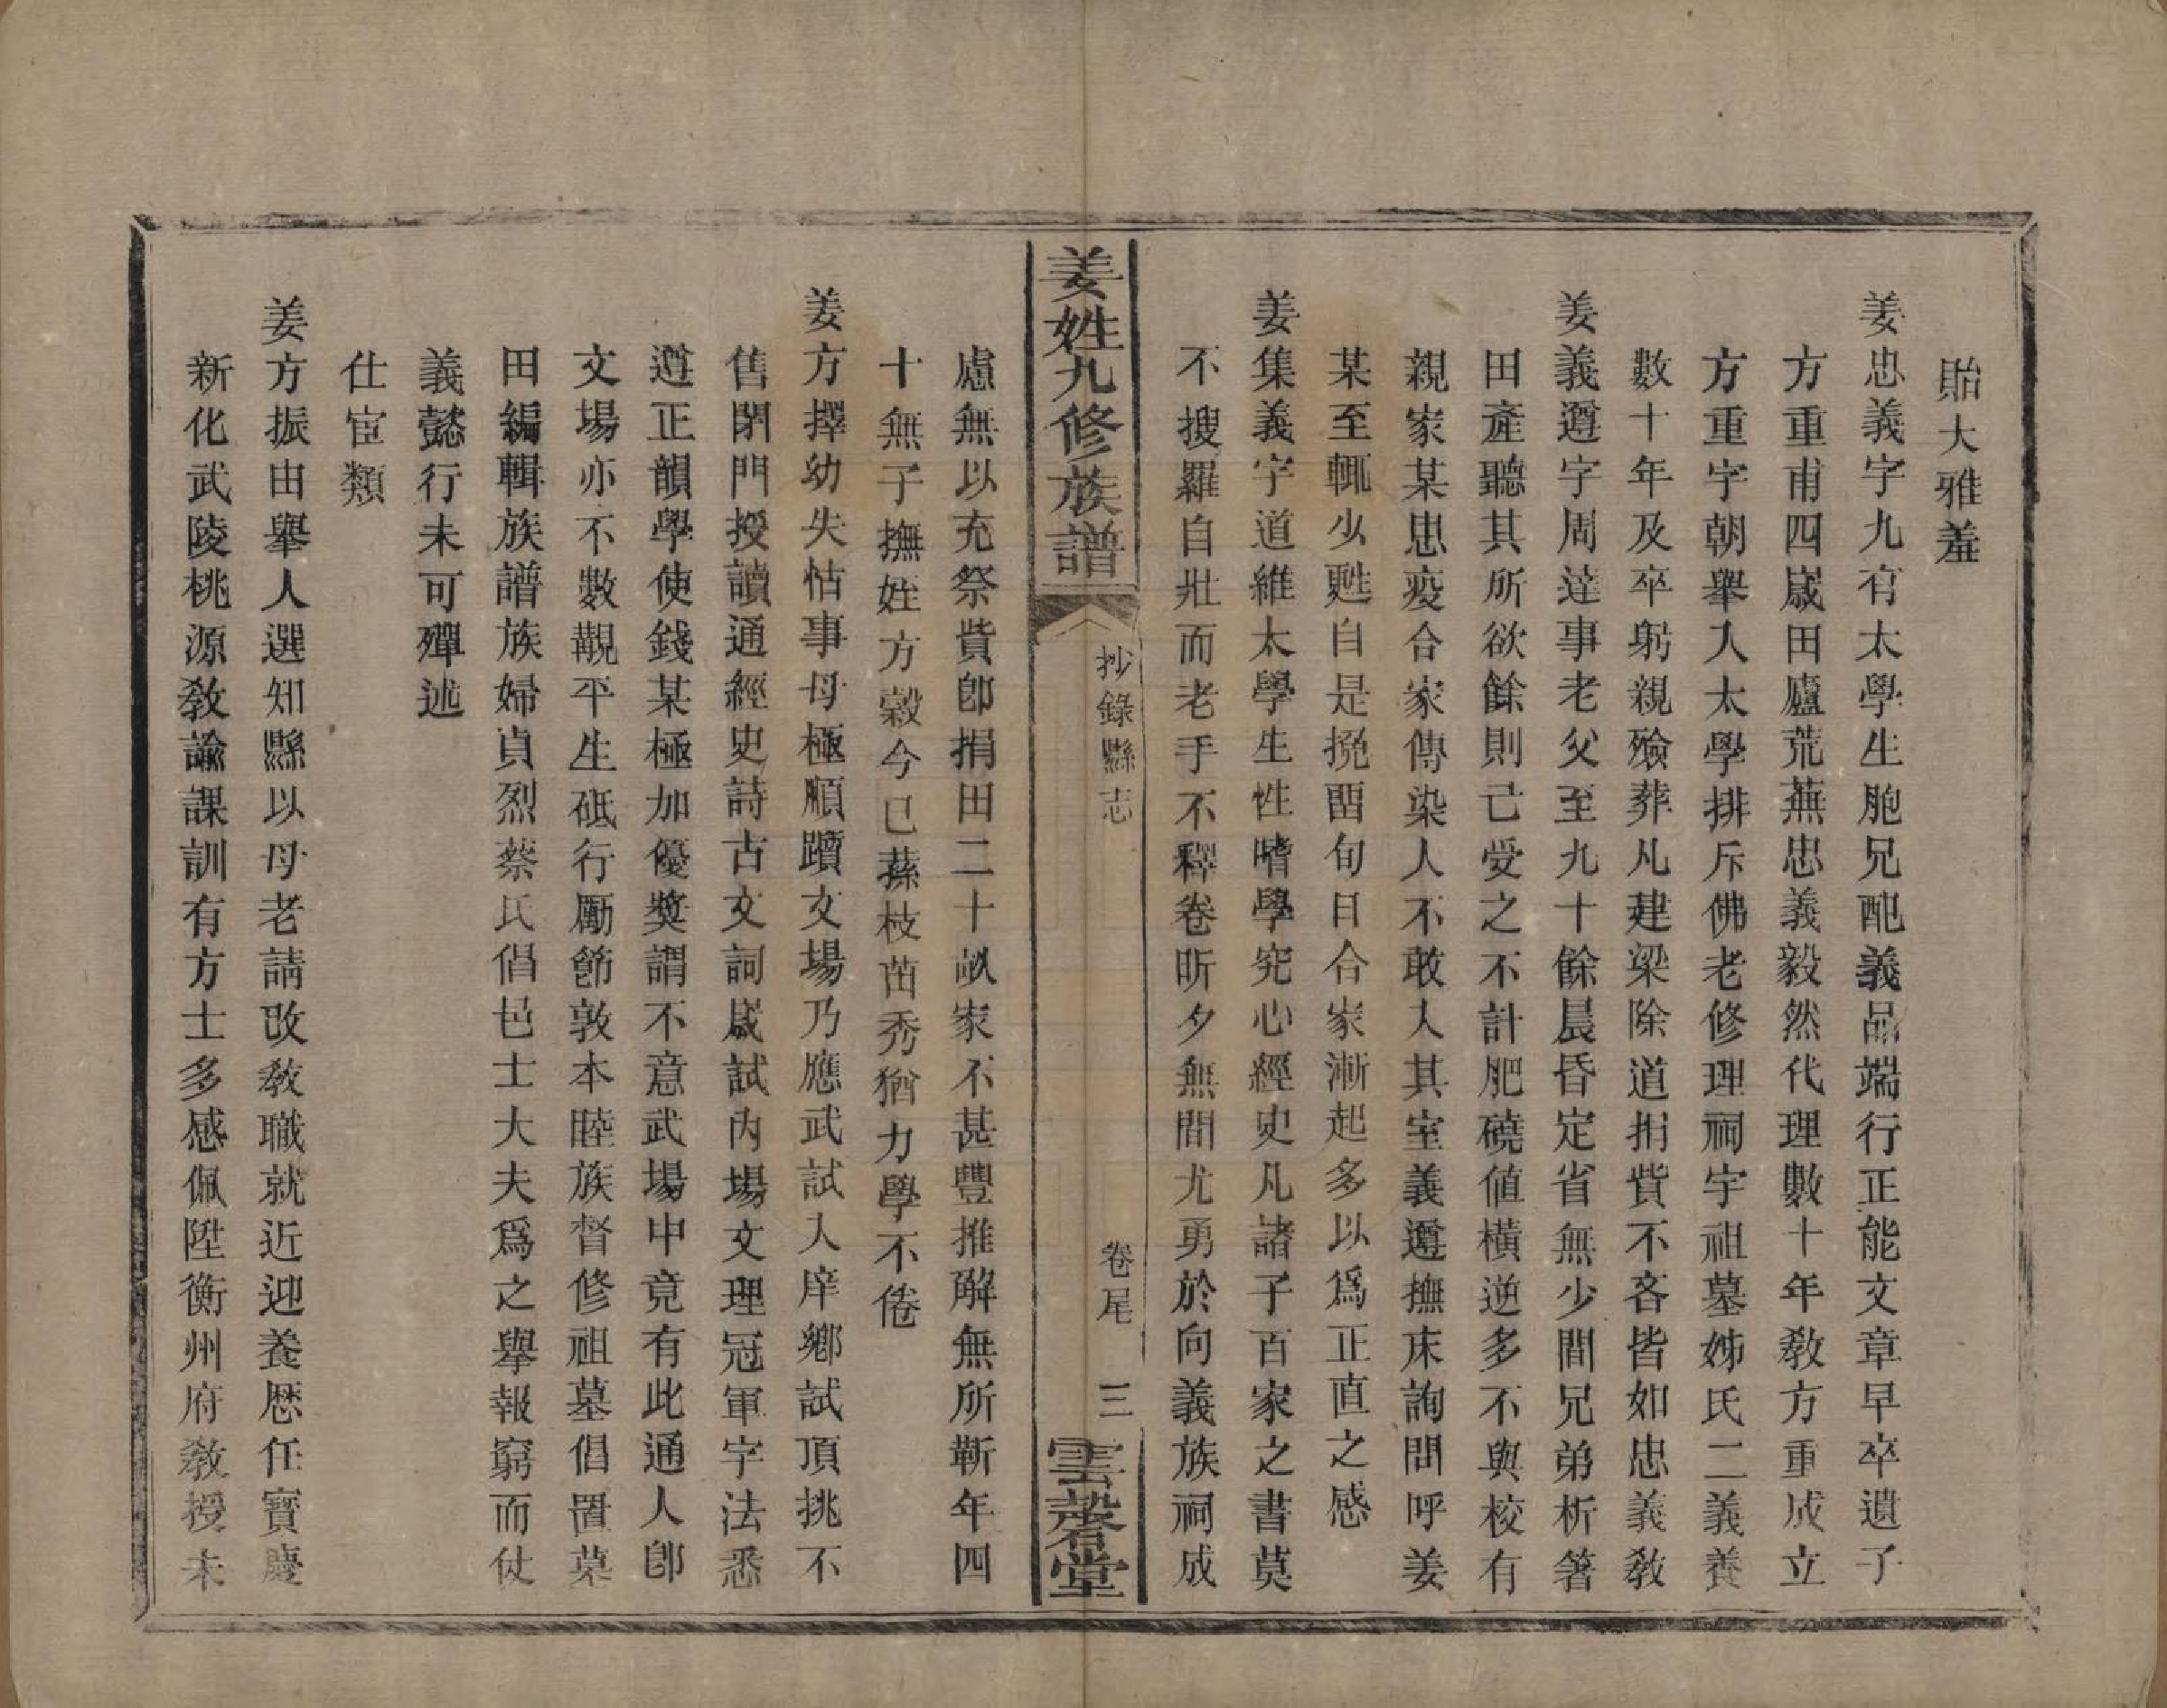 貽大雅羞
姜忠義字九有太學生胞兄配義品端行正能文章早卒遺子
方重甫四歲田廬荒蕪忠義毅然代理數十年教方重成立
方重字朝舉入太學排斥佛老修理祠宇祖墓姊氏二義養
數十年及卒躬親殮葬凡建梁除道捐貲不吝皆如忠義教
姜義遵字周達事老父至九十餘晨昏定省無少間兄弟析箸
田產聽其所欲餘則己受之不計肥磽值橫逆多不與校有
親家某患疫合家傳染人不敢入其室義遵撫床詢問呼姜
某至輒少甦自是挽畱旬日合家漸起多以為正直之感
姜集義字道維太學生性嗜學究心經史凡諸子百家之書莫
不搜羅自壯而老手不釋卷昕夕無間尤勇於向義族祠成
姜姓九修族譜
抄錄縣志
卷尾
三
雲磬堂
慮無以充祭貲卽捐田二十畝家不甚豐推解無所靳年四
十無子撫姪方穀今已蓀枝茁秀猶力學不倦
姜方擇幼失怙事母極順躓文場乃應武試入庠鄉試頂挑不
售閉門授讀通經史詩古文詞歲試內場文理冠軍字法悉
遵正韻學使錢某極加優獎謂不意武場中竟有此通人卽
文場亦不數觀平生砥行勵節敦本睦族督修祖墓倡置墓
田編輯族譜族婦貞烈蔡氏倡邑士大夫爲之舉報窮而仗
義懿行未可殫述
仕宦類
姜方振由舉人選知縣以母老請改教職就近迎養歷任寶慶
新化武陵桃源教諭課訓有方士多感佩陞衡州府教授未